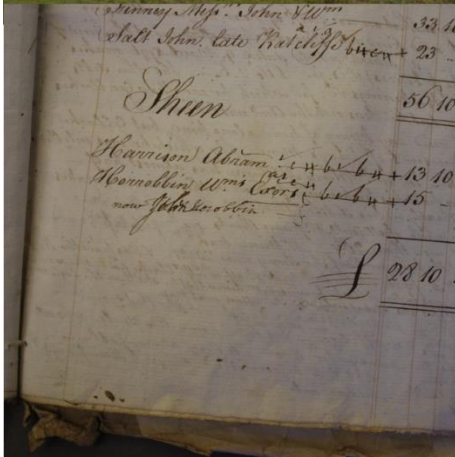 Finney Mess.rs John & Wm 33 10
Salt John, late Ratcliffe + 23 ..
56 10
Sheen
Harrison Abram + 13 10
Herrobbin Wm's Exors + 15 -
now John Knobbin
£ 28 10